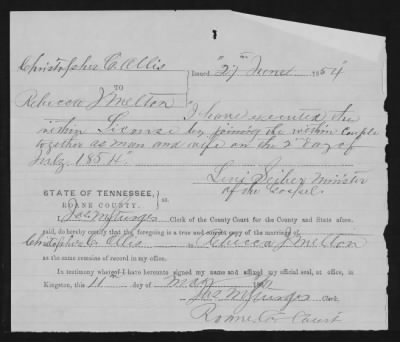 Christopher C. Ollis
Issued 27th June 1854
TO
Rebecca J Melton
I have executed the
within License by joining the within couple
together as man and wife on the 2d day of
July 1854.
Levi Seiber minister
of the Gospel
STATE OF TENNESSEE,
ROANE COUNTY. } ss.
I, Jas M Sturges Clerk of the County Court for the County and State afore-
said, do hereby certify that the foregoing is a true and correct copy of the marriage of
Christopher C. Ollis to Rebecca J Melton
as the same remains of record in my office.
In testimony whereof I have hereunto signed my name and affixed my official seal, at office, in
Kingston, this 11th day of May
Jas M Sturges Clerk
Roane Co Court